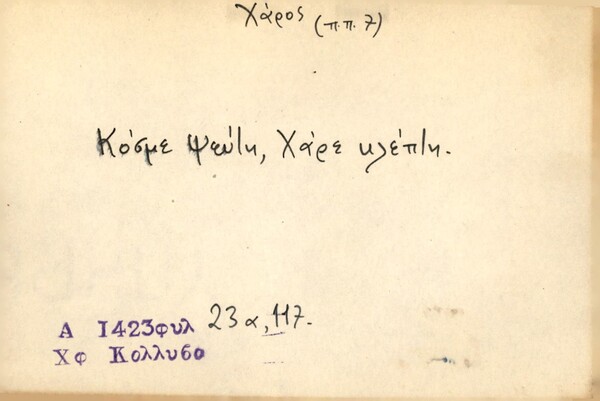 Χάρος (π.π. 7)
Κόσμε ψεύτη, Χάρε κλέπτη.
Α 1423φυλ 23α, 117.
Χφ Κολλυδο